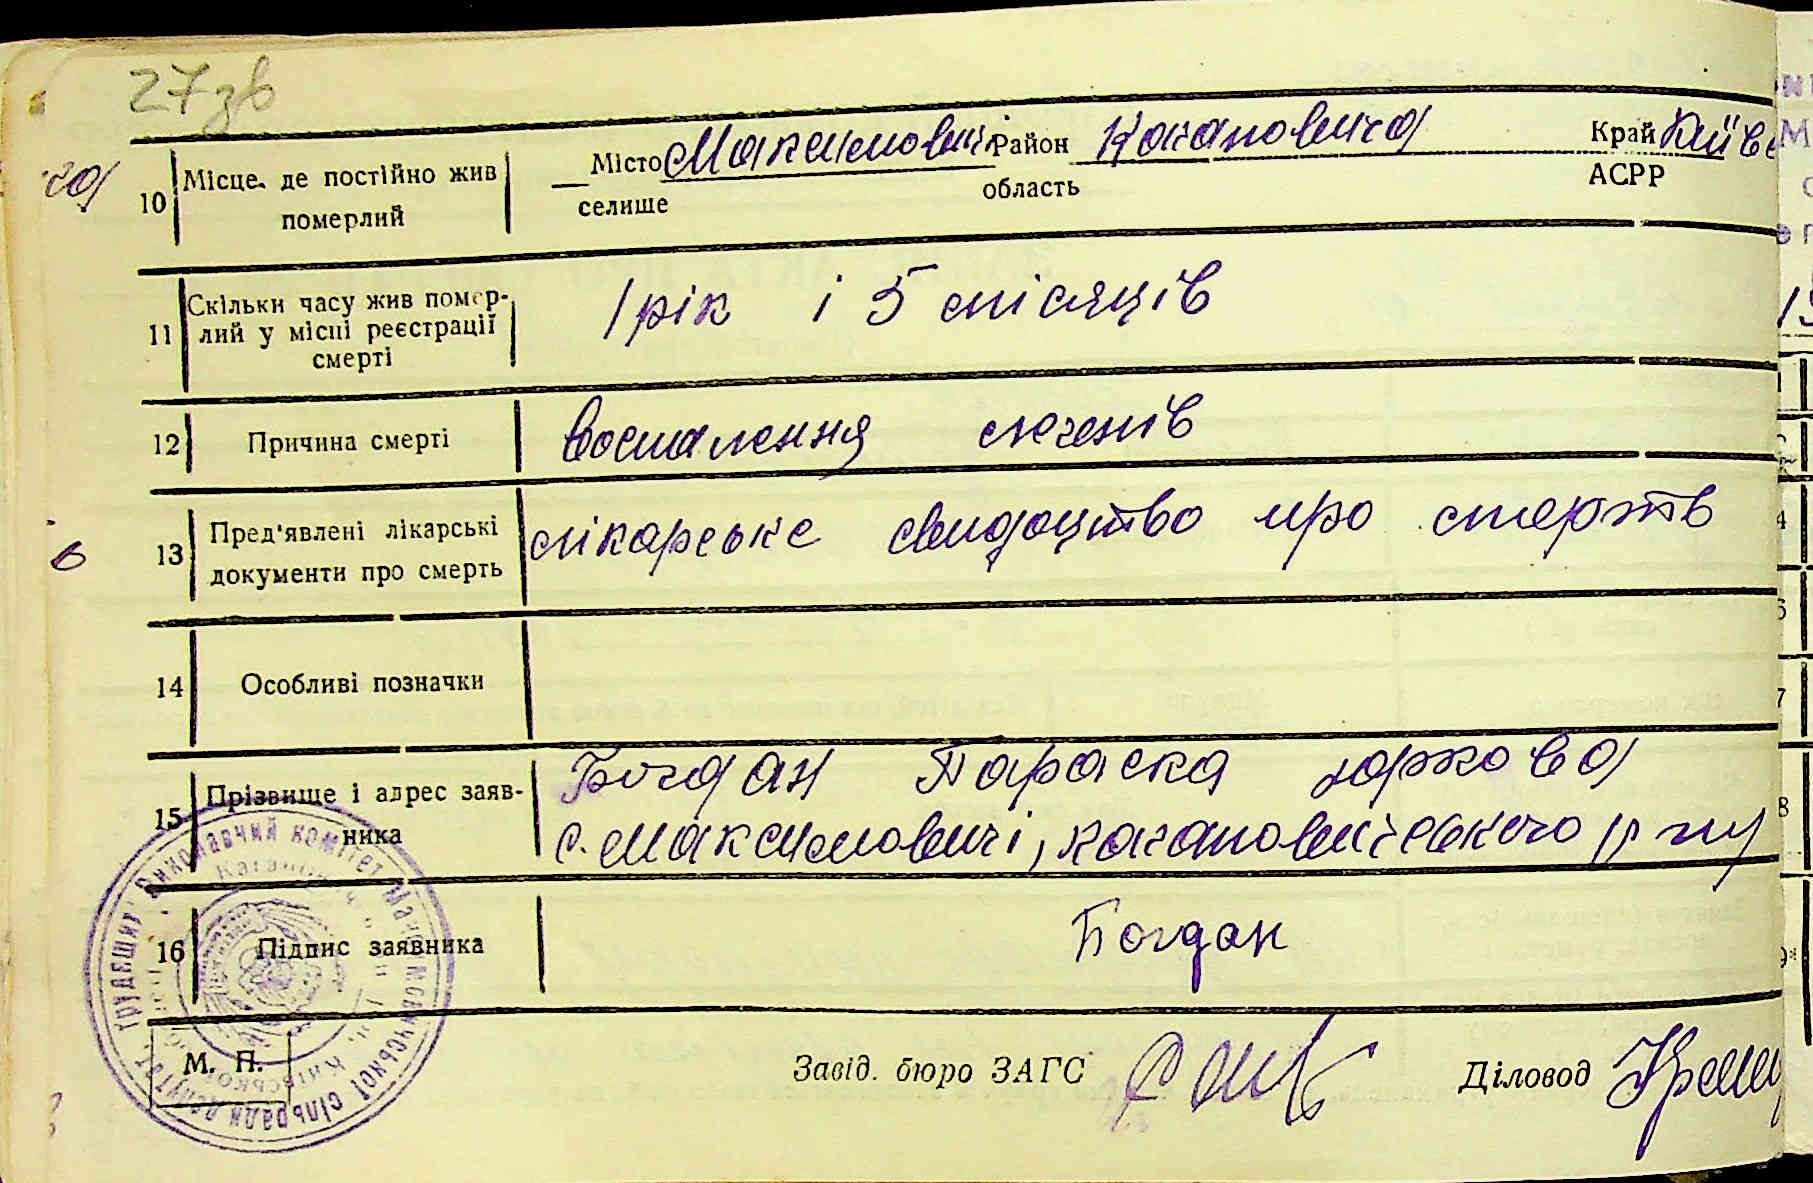 27зв
Місто Максимовичі Район Кагановича Край Київс
10 Місце, де постійно жив померлий
селище область АСРР
11 Скільки часу жив померлий у місці реєстрації смерті 1 рік і 5 місяців
12 Причина смерті воспалення легенів
13 Пред'явлені лікарські документи про смерть лікарське свидоцтво про смерть
14 Особливі позначки
15 Прізвище і адрес заявника Богдан Параска Юркова
с. Максимовичі, Кагановичевського р-ну
16 Підпис заявника Богдан
М. П. Завід. бюро ЗАГС Діловод
Виконавчий комітет Максимовичської сільради депутат. трудящих
Київської